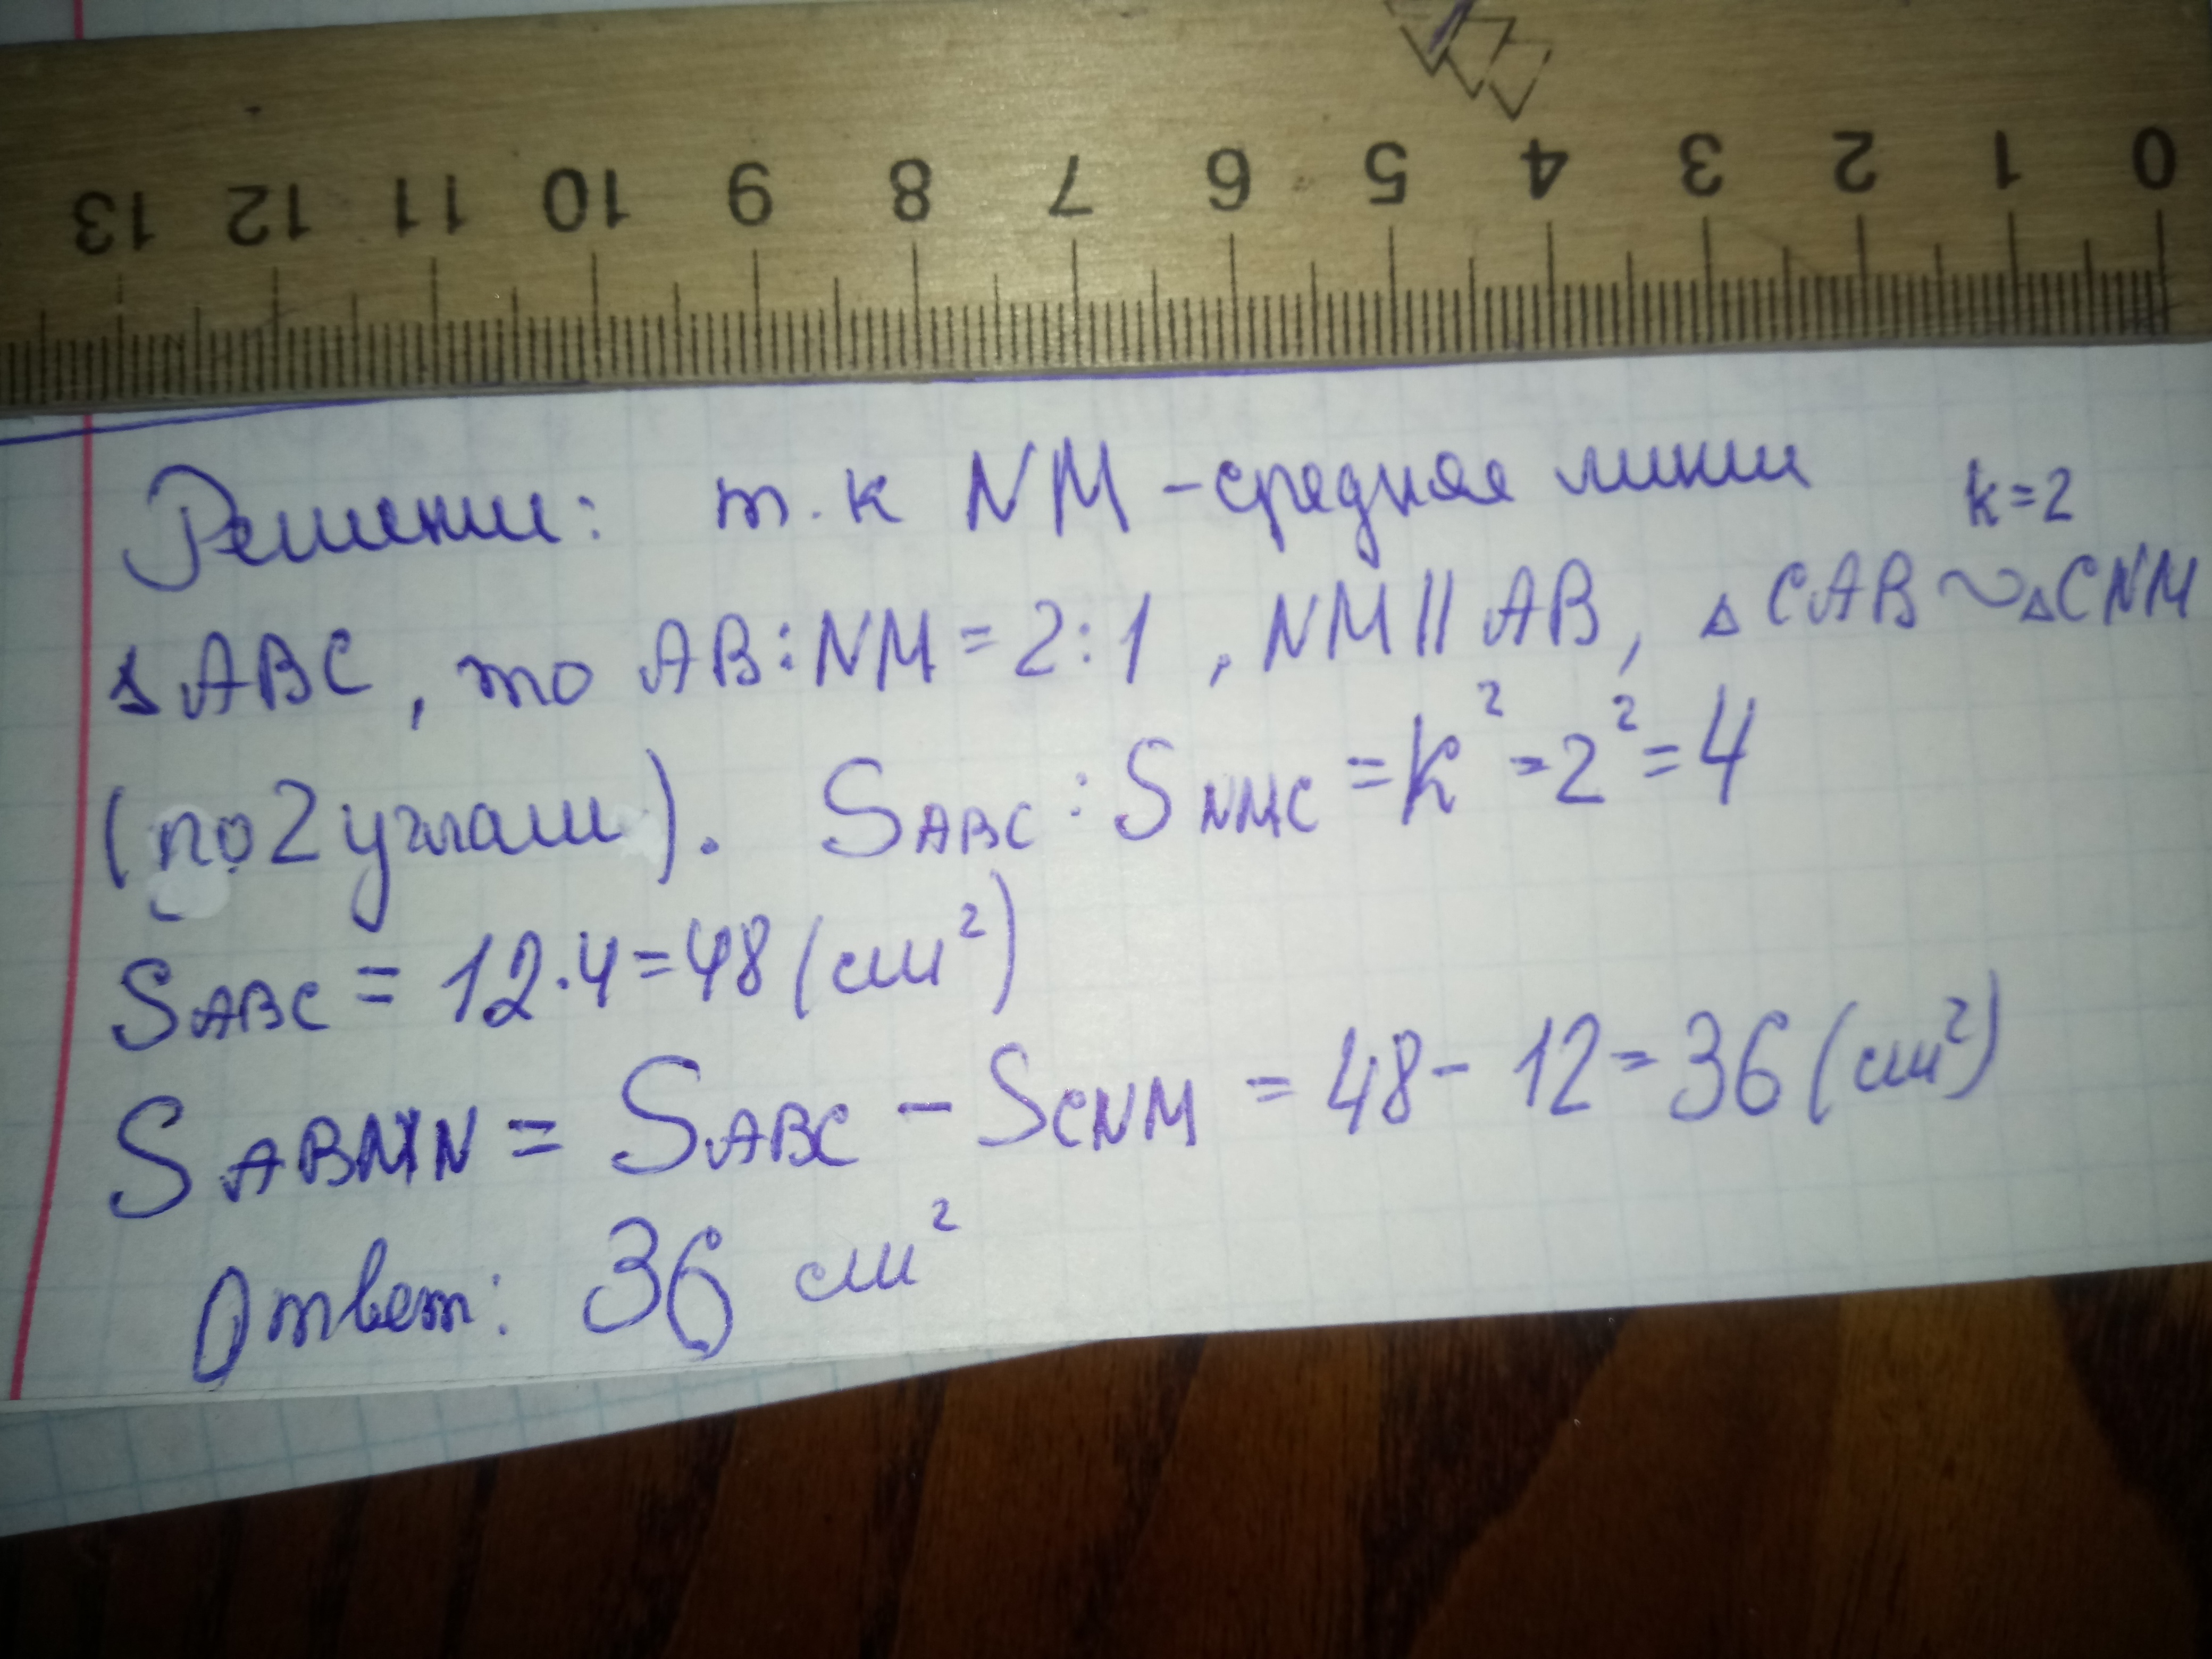 13 12 11 10 9 8 7 6 5 4 3 2 1 0
Решение: т.к NM - средняя линия
k=2
△ABC, то AB:NM=2:1, NM||AB, △CAB~△CNM
(по 2 углам). SABC:SNMC=k²=2²=4
SABC=12·4=48(см²)
SABMN=SABC-SCNM=48-12=36(см²)
Ответ: 36 см²